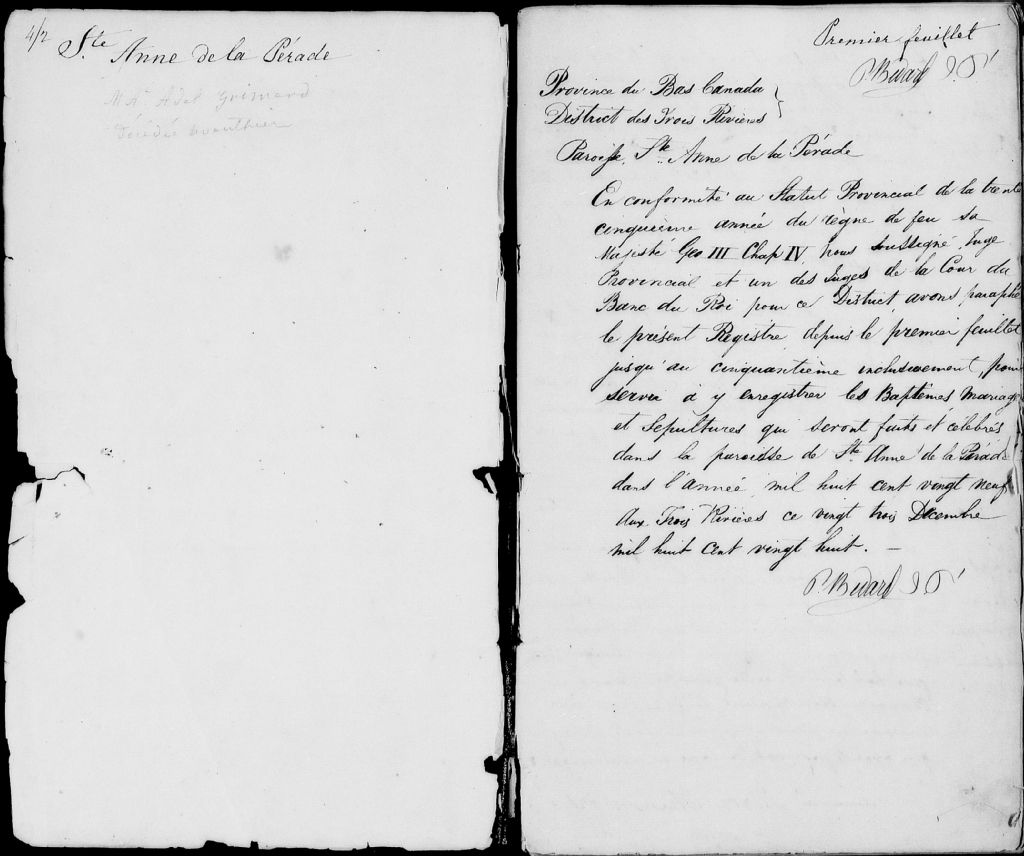 4/2
Ste Anne de la Pérade
Adel Grimard
Premier feuillet
P. Bedard J P
Province du Bas Canada
District des Trois Rivières
Paroisse Ste Anne de la Pérade
En conformité au Statut Provincial de la trente
cinquieme année du règne de feu sa
Majesté Geo III Chap IV, nous soussigné Juge
Provincial et un des Juges de la Cour du
Banc du Roi pour ce District, avons paraphé
le présent Registre, depuis le premier feuillet
jusqu'au cinquantième inclusivement, pour
servir à y enregistrer les Baptêmes Mariages
et Sepultures qui seront faits et célébrés
dans la paroisse de Ste Anne de la Pérade
dans l'année mil huit cent vingt neuf
Aux Trois Rivières ce vingt trois Décembre
mil huit cent vingt huit. —
P. Bedard J P